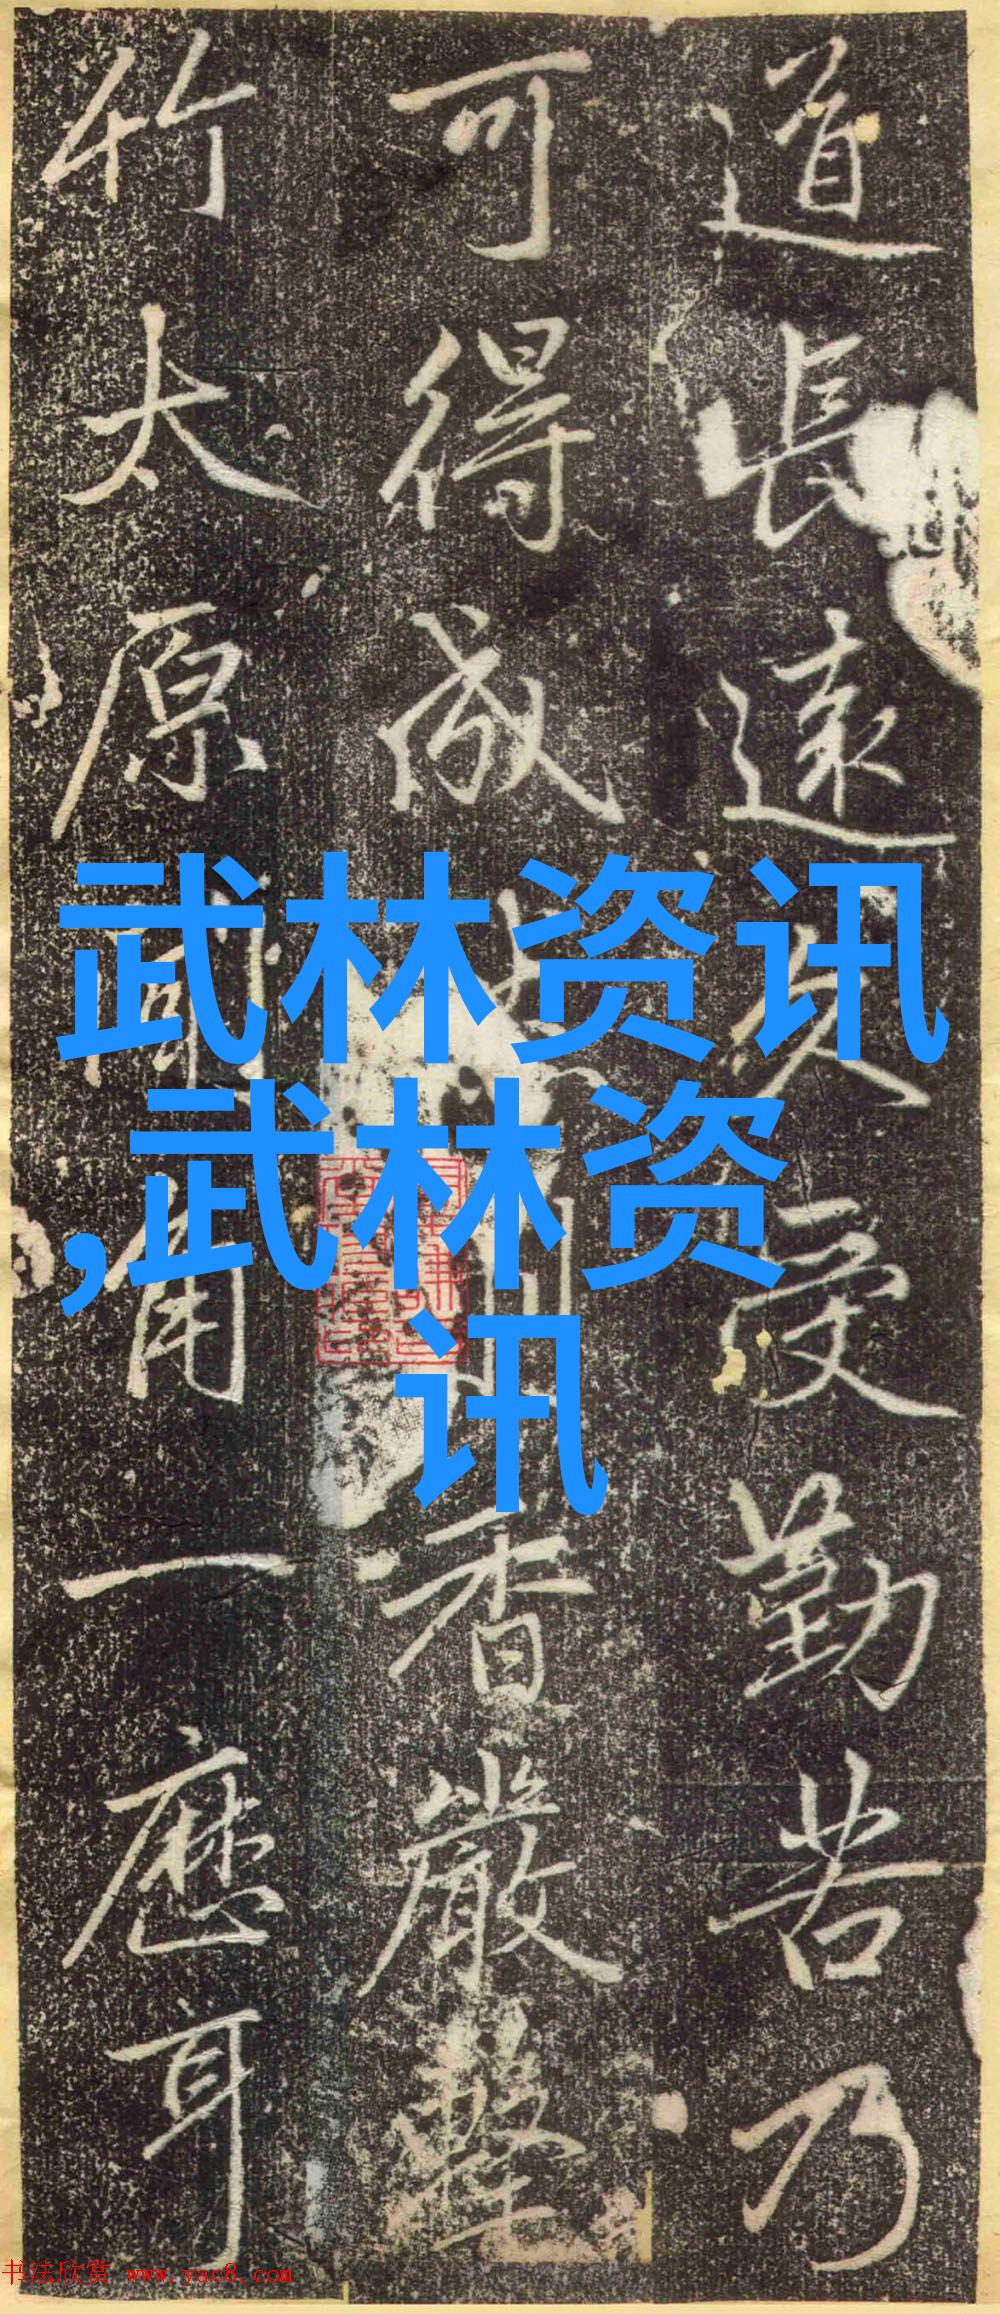 道長遠久受勤苦乃
可得成
香嚴擊
竹太原
一應耳
武林资讯
,武林资
讯
书法欣赏 www.yac8.com